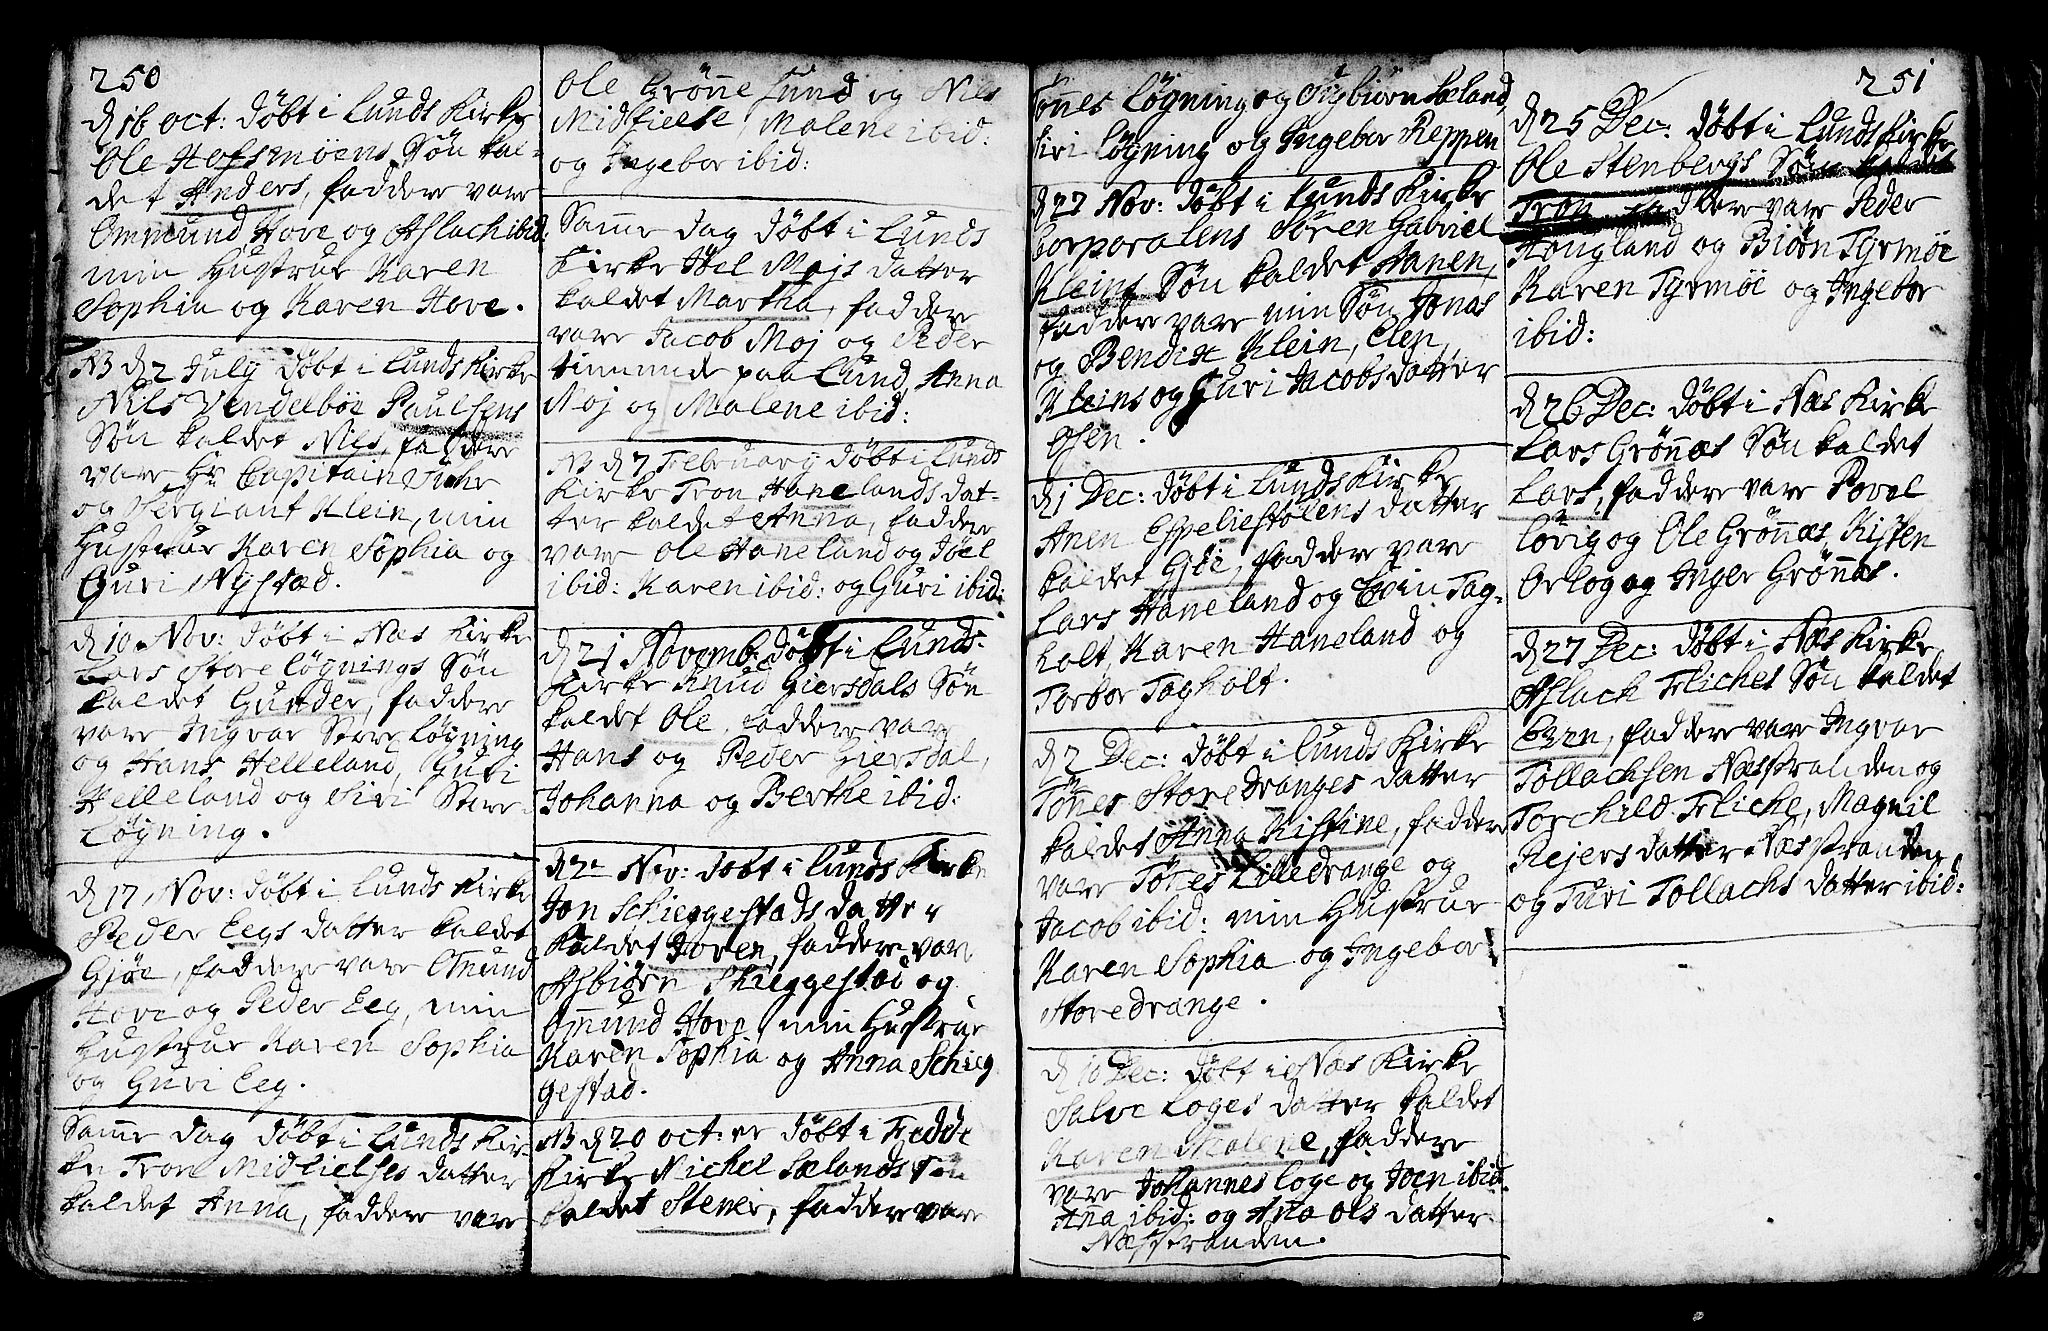 250
d 16 oct: døbt i Lunds Kirke
Ole Hofsmoens Søn kal-
det Anders, faddere vare
Ommund Hove og Aslach ibid:
min Hustrue Karen
Sophia og Karen Hove.
NB d 2 July døbt i Lunds Kirke
Nils Vendelböe Paulsens
Søn kaldet Nils, faddere
vare Hr Capitain
og Sergiant Klein, min
Hustrue Karen Sophia og
Guri Nystad.
d 10 Nov: døbt i Næs Kirke
Lars Store Løgnings Søn
kaldet Gunder, faddere
vare Ingvar Store Løgning
og Hans Helleland, Guri
Helleland og Siri Store
Løgning.
d 17 Nov: døbt i Lunds Kirke
Peder Eegs datter kaldet
Gjøe, faddere vare Omund
Hove og Peder Eeg, min
Hustrue Karen Sophia
og Guri Eeg.
Same dag døbt i Lunds Kir-
ke Tron Midtielses datter
kaldet Anna, faddere vare
Ole Grönne Lund og Nils
Midtielse, Malene ibid:
og Ingebor ibid:
Same dag døbt i Lunds
Kirke Joel Mojs datter
kaldet Martha, faddere
vare Jacob Moj og Peder
tienende paa Lund, Anna
Moj og Malene ibid:
NB d 7 February døbt i Lunds
Kirke Tron Hanelands dat-
ter kaldet Anna, faddere
vare Ole Haneland og Joel
ibid: Karen ibid: og Guri ibid:
d 21 Novemb: døbt i Lunds-
Kirke Knud Giersdals Søn
kaldet Ole, faddere vare
Hans og Peder Giersdal,
Johanna og Berthe ibid:
d 22 Nov: døbt i Lunds Kirke
Jon Schieggestads datter
kaldet Joren, faddere vare
Asbiörn Skieggestad og
Omund Hove, min Hustrue
Karen Sophia og Anna Schieg
gestad.
NB d 20 oct: er døbt i Fedde
Kirke Michel Sælands Søn
kaldet Stener, faddere vare
251
Tönnes Løgning og Sigbiörn Sæland,
Siri Løgning og Ingebor Reppen
d 27 Nov: døbt i Lunds Kirke
Corporalens Søren Gabriel
Kleins Søn kaldet Hanen,
faddere vare min Søn Jonas
og Bendix Klein, Elen
Kleins og Guri Jacobsdatter
Osen.
d 1 Dec: døbt i Lunds Kirke
Anen Espeliestølens datter
kaldet Gjøe, faddere vare
Lars Haneland og Evin Tag-
holt, Karen Haneland og
Torbor Tagholt.
d 2 Dec: døbt i Lunds Kirke
Tönnes Store Dranges datter
kaldet Anna Kistine, faddere
vare Tönes Lilledrange og
Jacob ibid: min Hustrue
Karen Sophia og Ingebor
Storedrange.
d 10 Dec: døbt i Næs Kirke
Salve Loges datter kaldet
Karen Malene, faddere
vare Johannes Loge og Joen ibid.
Ana ibid: og Ana Ols datter
Næsstranden.
d 25 Dec: døbt i Lunds Kirke
Ole Stenbergs Søn kaldet
Tron faddere vare Peder
Hougland og Biörn Tyrmöe
Karen Tyrmöe og Ingebor
ibid:
d 26 Dec: døbt i Næs Kirke
Lars Grönnæs Søn kaldet
Lars, faddere vare Povel
Lovig og Ole Grönnæs, Kisten
Orlog og Inger Grönnæs.
d 27 Dec: døbt i Næs Kirke
Aslach Fliches Søn kaldet
Even, faddere vare Ingvar
Tollachsen Næsstranden og
Torchild Fliche, Magnil
Rejersdatter Næsstranden
og Turi Tollachs datter ibid: